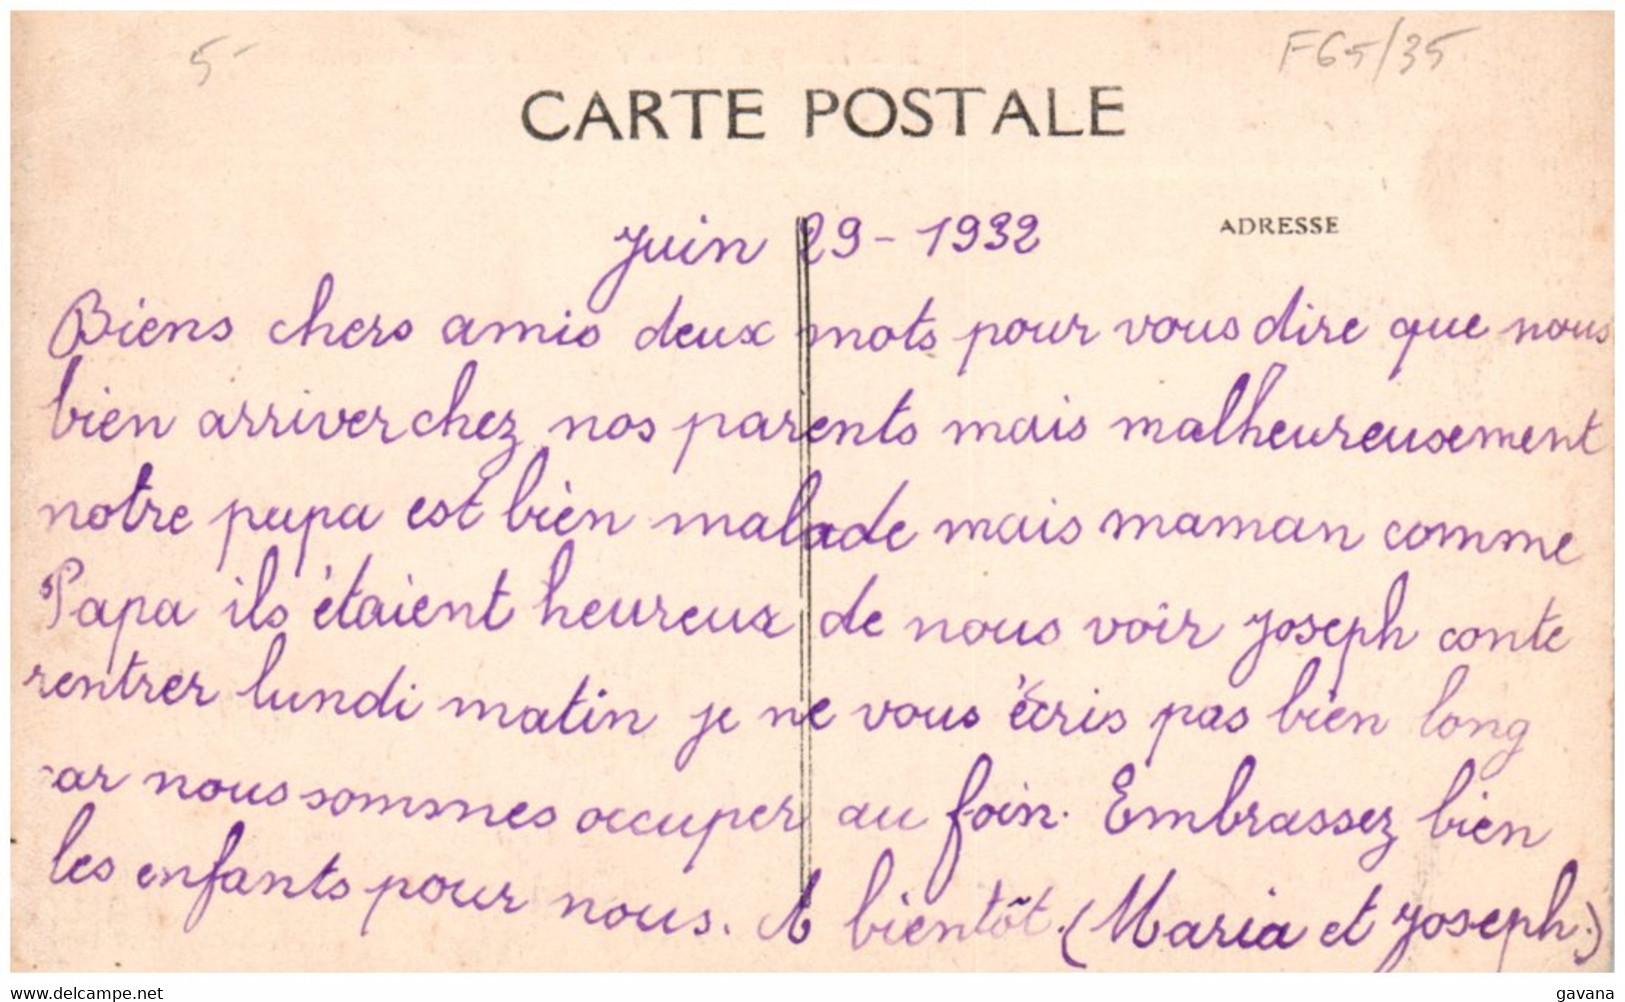 5-
F65/35
CARTE POSTALE
ADRESSE
Juin 29-1932
Biens chers amis deux mots pour vous dire que nous
bien arriver chez nos parents mais malheureusement
notre papa est bien malade mais maman comme
Papa ils étaient heureux de nous voir Joseph conte
rentrer lundi matin je ne vous écris pas bien long
car nous sommes occuper au foin. Embrassez bien
les enfants pour nous. A bientôt. (Maria et Joseph.)
www.delcampe.net
gavana